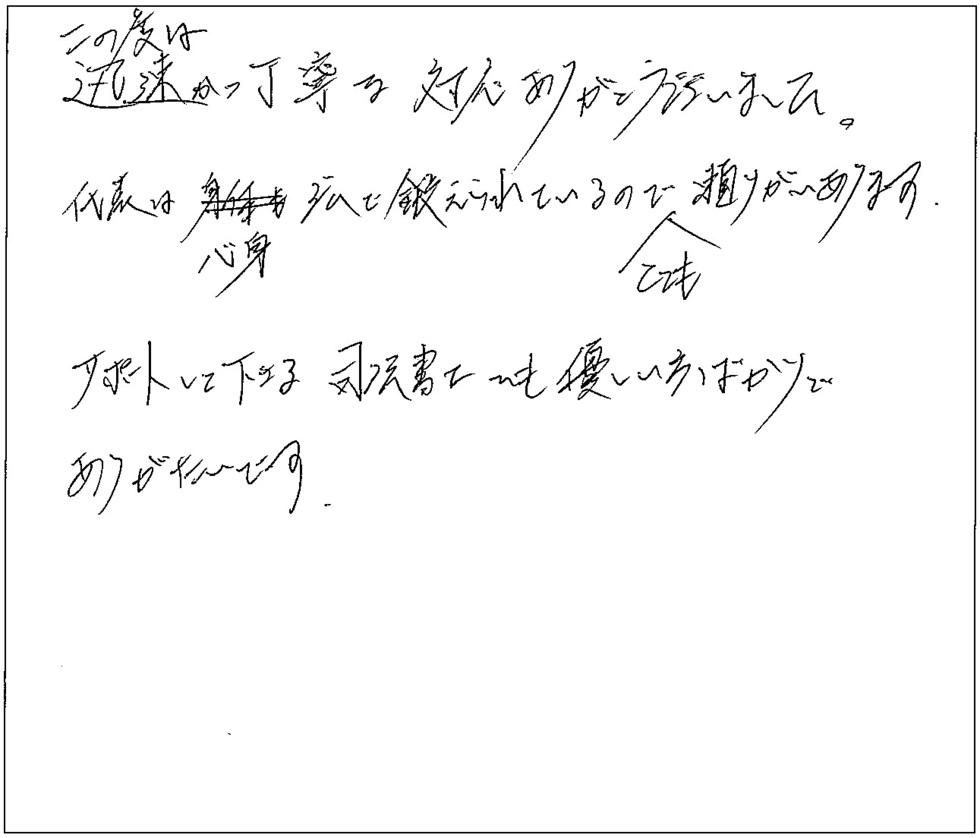 この度は
迅速かつ丁寧な 対応ありがとうございました。
代表は 身体も ジムで鍛えられているので 頼りがいあります.
心身
とても
サポートして下さる 司法書士の方も 優しい方ばかりで
ありがたいです.